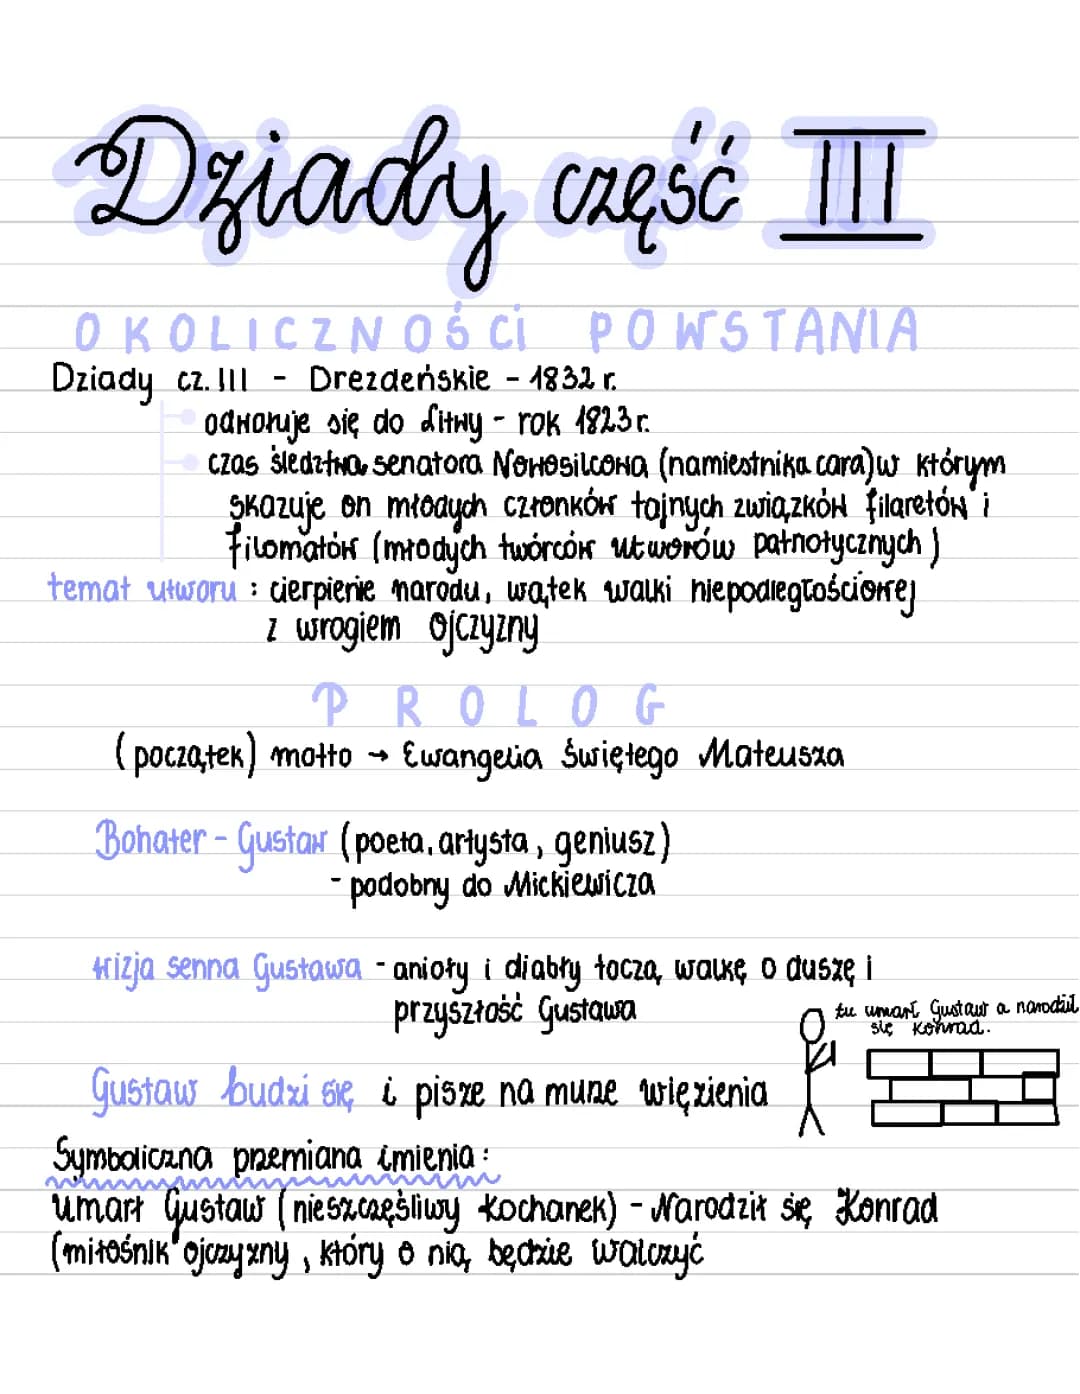 Dziady część III
OKOLICZNOŚCI POWSTANIA
Dziady cz. III - Drezdeńskie - 1832 r.
odwołuje się do Litwy - rok 1823 r.
czas śledztwa senatora Nowosilcowa (namiestnika cara) w którym
skazuje on młodych członków tajnych związków filaretów i
filomatów (młodych twórców utworów patriotycznych)
temat utworu : cierpienie narodu, wątek walki niepodległościowej
z wrogiem ojczyzny
PROLOG
(początek) motto → Ewangelia Świętego Mateusza
Bohater - Gustaw (poeta, artysta, geniusz)
- podobny do Mickiewicza
wizja senna Gustawa - anioły i diabły toczą walkę o duszę i
przyszłość Gustawa
tu umarł Gustaw a narodził
się Konrad.
Gustaw budzi się i pisze na murze więzienia
Symboliczna przemiana imienia :
umarł Gustaw (nieszczęśliwy kochanek) - Narodził się Konrad
(miłośnik ojczyzny, który o nią będzie walczyć